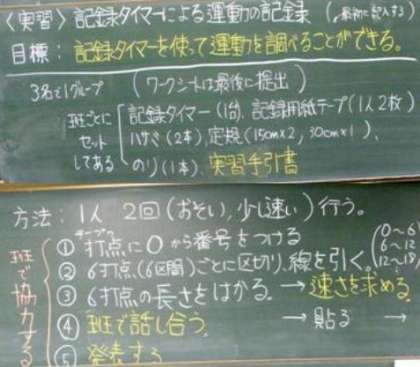 〈実習〉記録タイマーによる運動の記録(最初に記入する)
目標:記録タイマーを使って運動を調べることができる。
3名で1グループ (ワークシートは最後に提出)
班ごとにセットしてある
記録タイマー(1台)、記録用紙テープ(1人2枚)
ハサミ(2本)、定規(15cm×2, 30cm×1)、
のり(1本)、実習手引書
方法:1人 2回(おそい,少し速い)行う。
班で協力する
① テープの打点に0から番号をつける
② 6打点(6区間)ごとに区切り、線を引く。(0〜6 6〜12 12〜18)
③ 6打点の長さをはかる。→ 速さを求める
④ 班で話し合う。 → 貼る →
⑤ 発表する